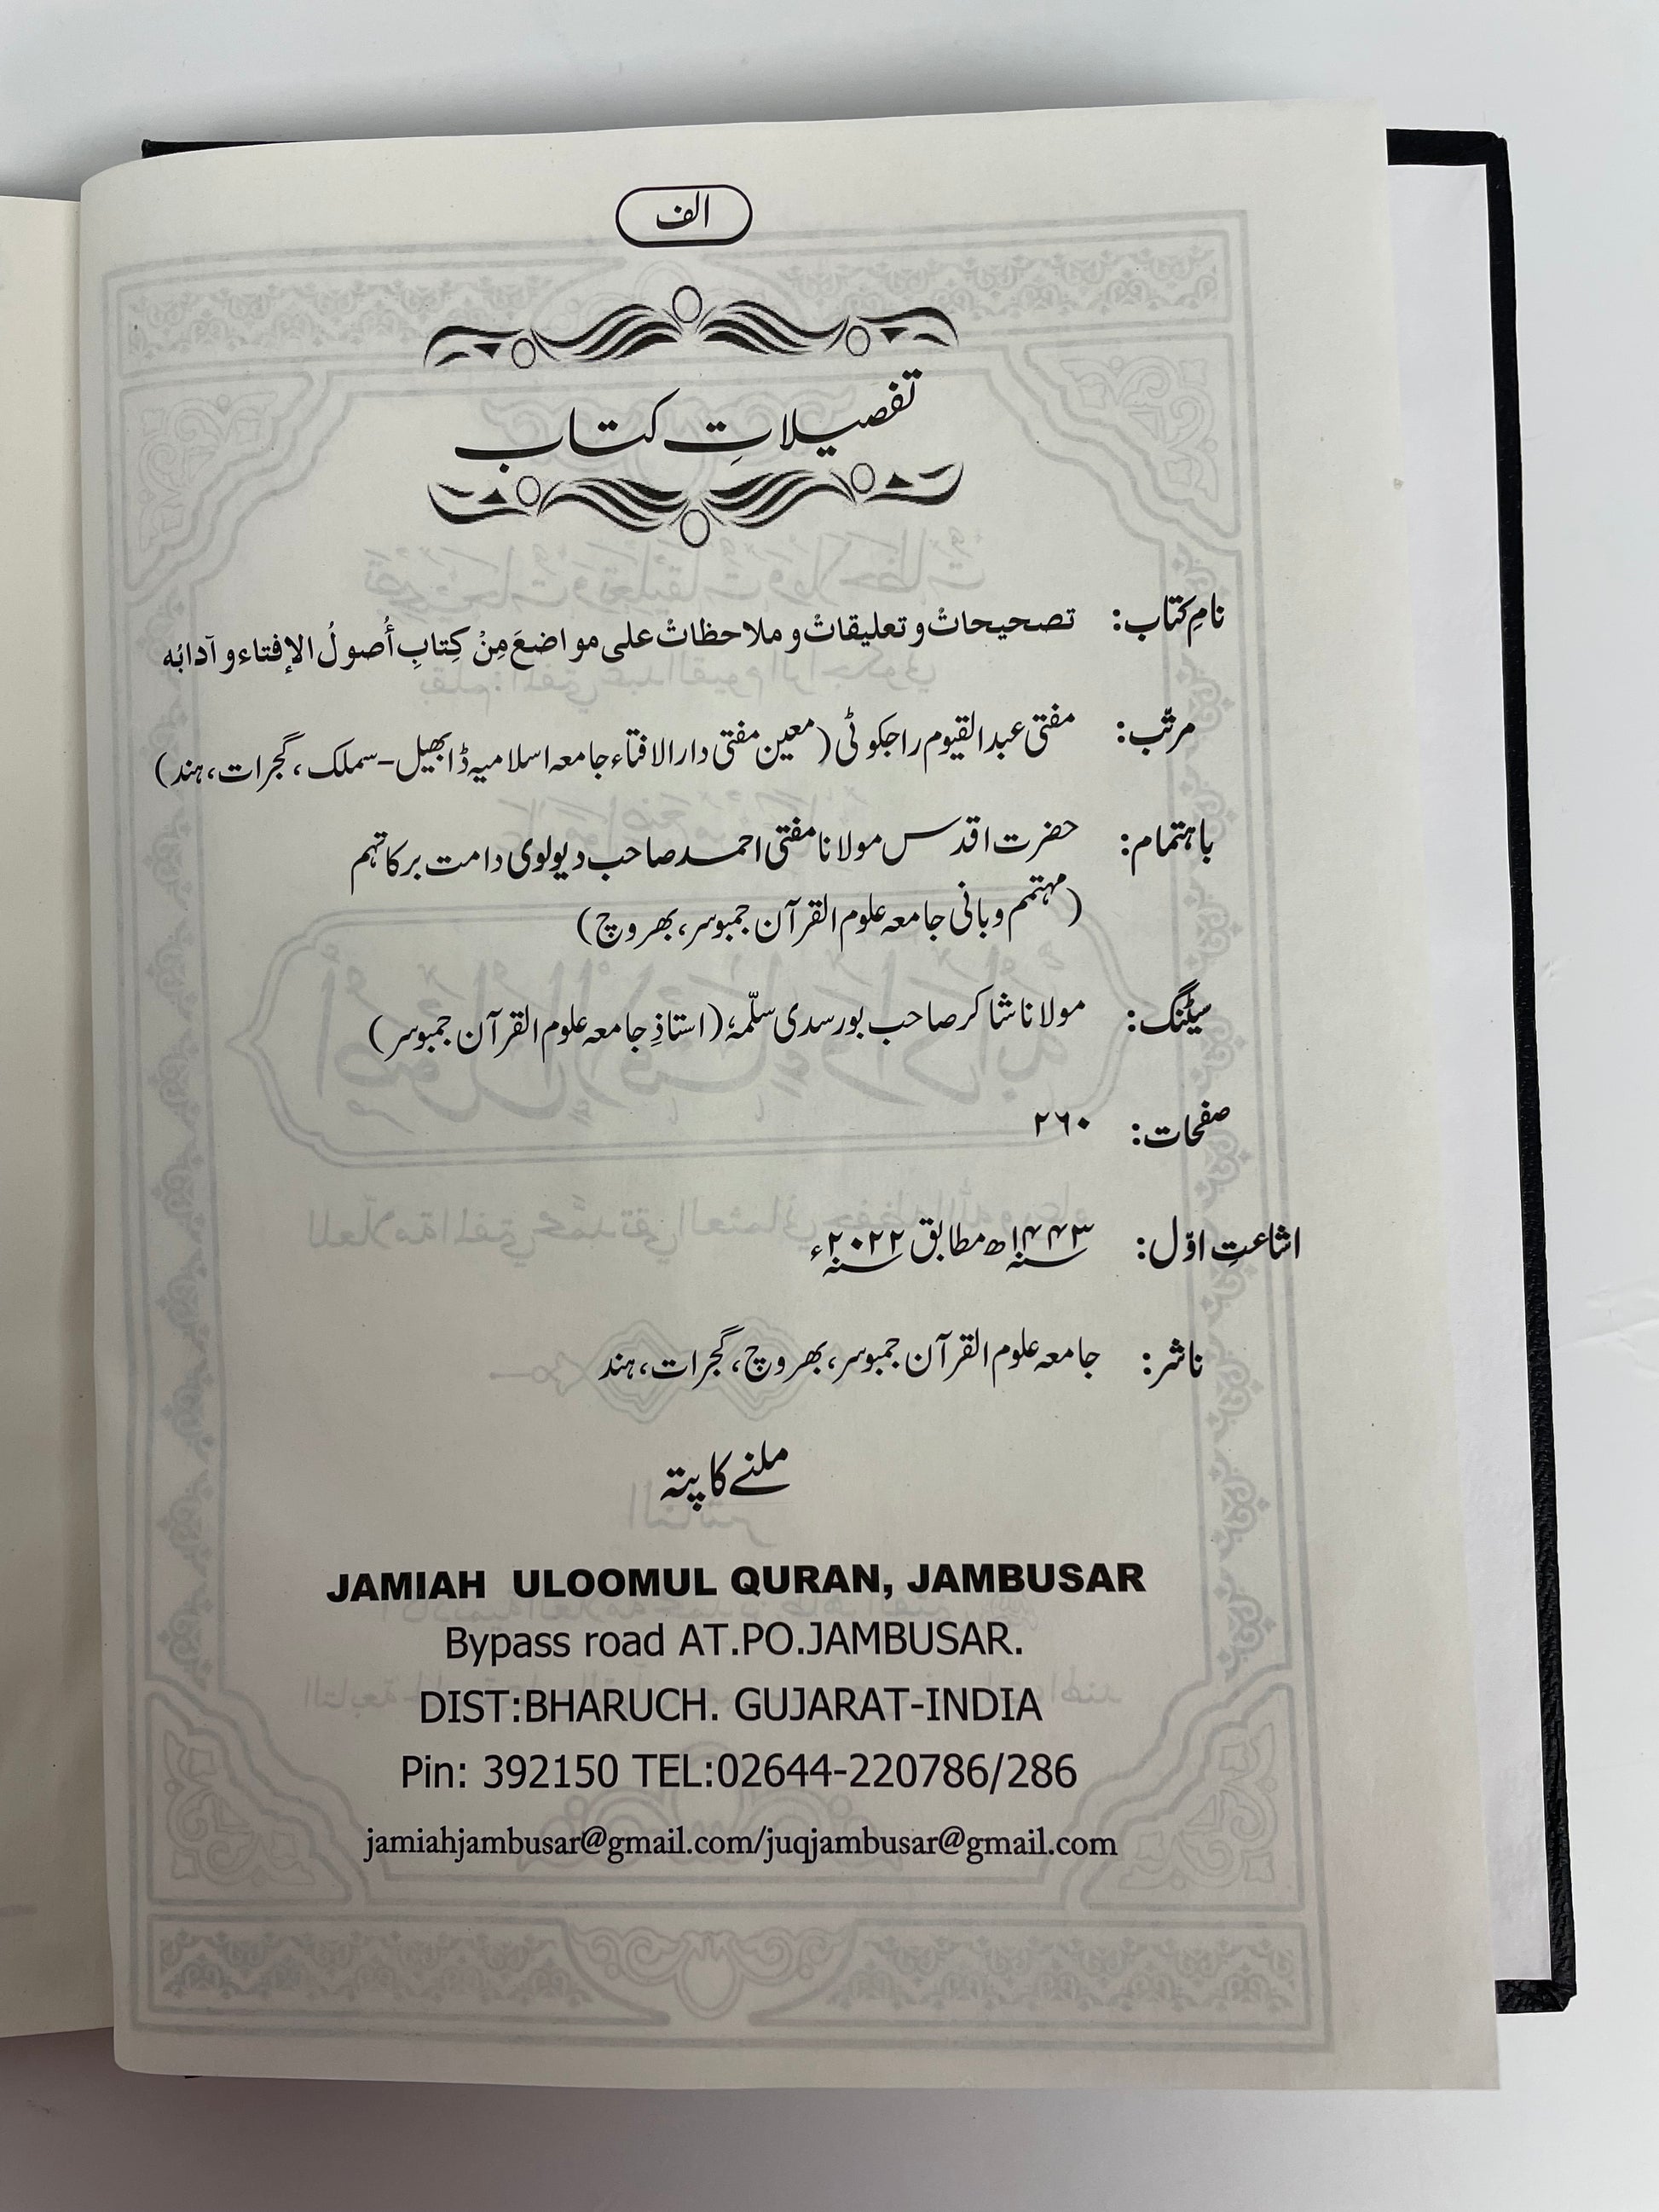 الف
تفصیلاتِ کتاب
نامِ کتاب: تصحیحاتْ و تعلیقاتْ و ملاحظاتْ علی مواضعَ مِنْ کِتابِ أُصولُ الإفتاء و آدابُه
مرتّب: مفتی عبدالقیوم راجکوٹی (معین مفتی دارالافتاء جامعہ اسلامیہ ڈابھیل-سملک، گجرات، ہند)
باہتمام: حضرت اقدس مولانا مفتی احمد صاحب دیولوی دامت برکاتہم
(مہتمم و بانی جامعہ علوم القرآن جمبوسر، بھروچ)
سیٹنگ: مولانا شاکر صاحب بورسدی سلّمہٗ (استاذِ جامعہ علوم القرآن جمبوسر)
صفحات: ۲۶۰
اشاعتِ اوّل: سنہ ۱۴۴۳ھ مطابق سنہ ۲۰۲۲ء
ناشر: جامعہ علوم القرآن جمبوسر، بھروچ، گجرات، ہند
ملنے کا پتہ
JAMIAH ULOOMUL QURAN, JAMBUSAR
Bypass road AT.PO.JAMBUSAR.
DIST:BHARUCH. GUJARAT-INDIA
Pin: 392150 TEL:02644-220786/286
jamiahjambusar@gmail.com/juqjambusar@gmail.com